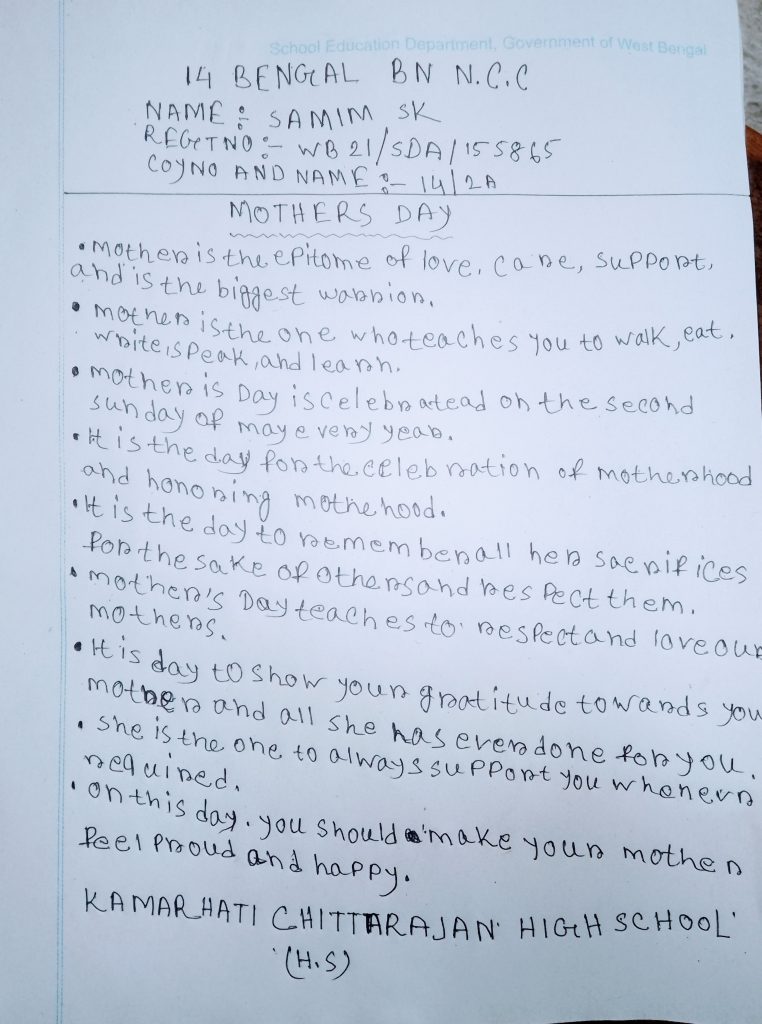 School Education Department, Government of West Bengal
14 BENGAL BN N.C.C
NAME :- SAMIM SK
REGTNO :- WB 21/SDA/155865
COYNO AND NAME :- 14/2A
MOTHERS DAY
• Mother is the epitome of love, care, support,
and is the biggest warrior.
• mother is the one who teaches you to walk, eat,
write, speak, and learn.
• mother is Day is celebratead on the second
sunday of may every year.
• It is the day for the celebration of motherhood
and honoring mothehood.
• It is the day to remember all her sacrifices
for the sake of others and respect them.
• mother's Day teaches to respect and love our
mothers.
• It is day to show your gratitude towards you
mother and all she has ever done for you.
• she is the one to always support you whenevr
required.
• on this day. you should make your mother
feel proud and happy.
KAMARHATI CHITTARAJAN HIGH SCHOOL
(H.S)